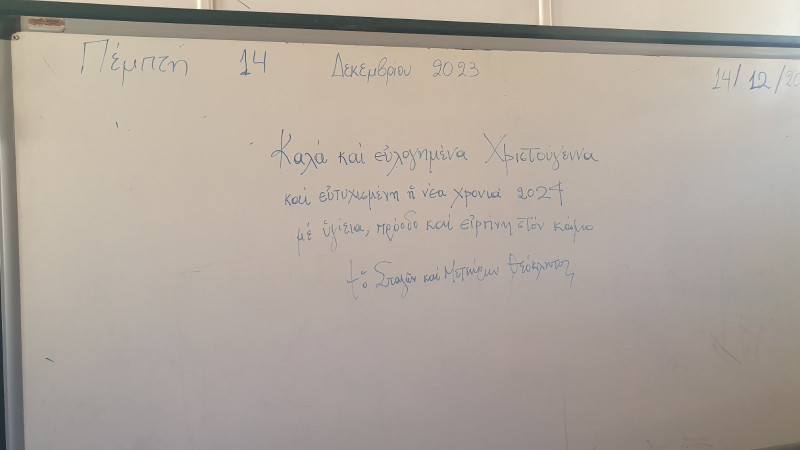 Πέμπτη 14 Δεκεμβρίου 2023
14/12/20
Καλά και εὐλογημένα Χριστούγεννα
καί εὐτυχισμένη ἡ νέα χρονιά 2024
μέ ὑγίεια, πρόοδο καί εἰρήνη στόν κόσμο
† ὁ Σταγῶν καί Μετεώρων Θεόκλητος